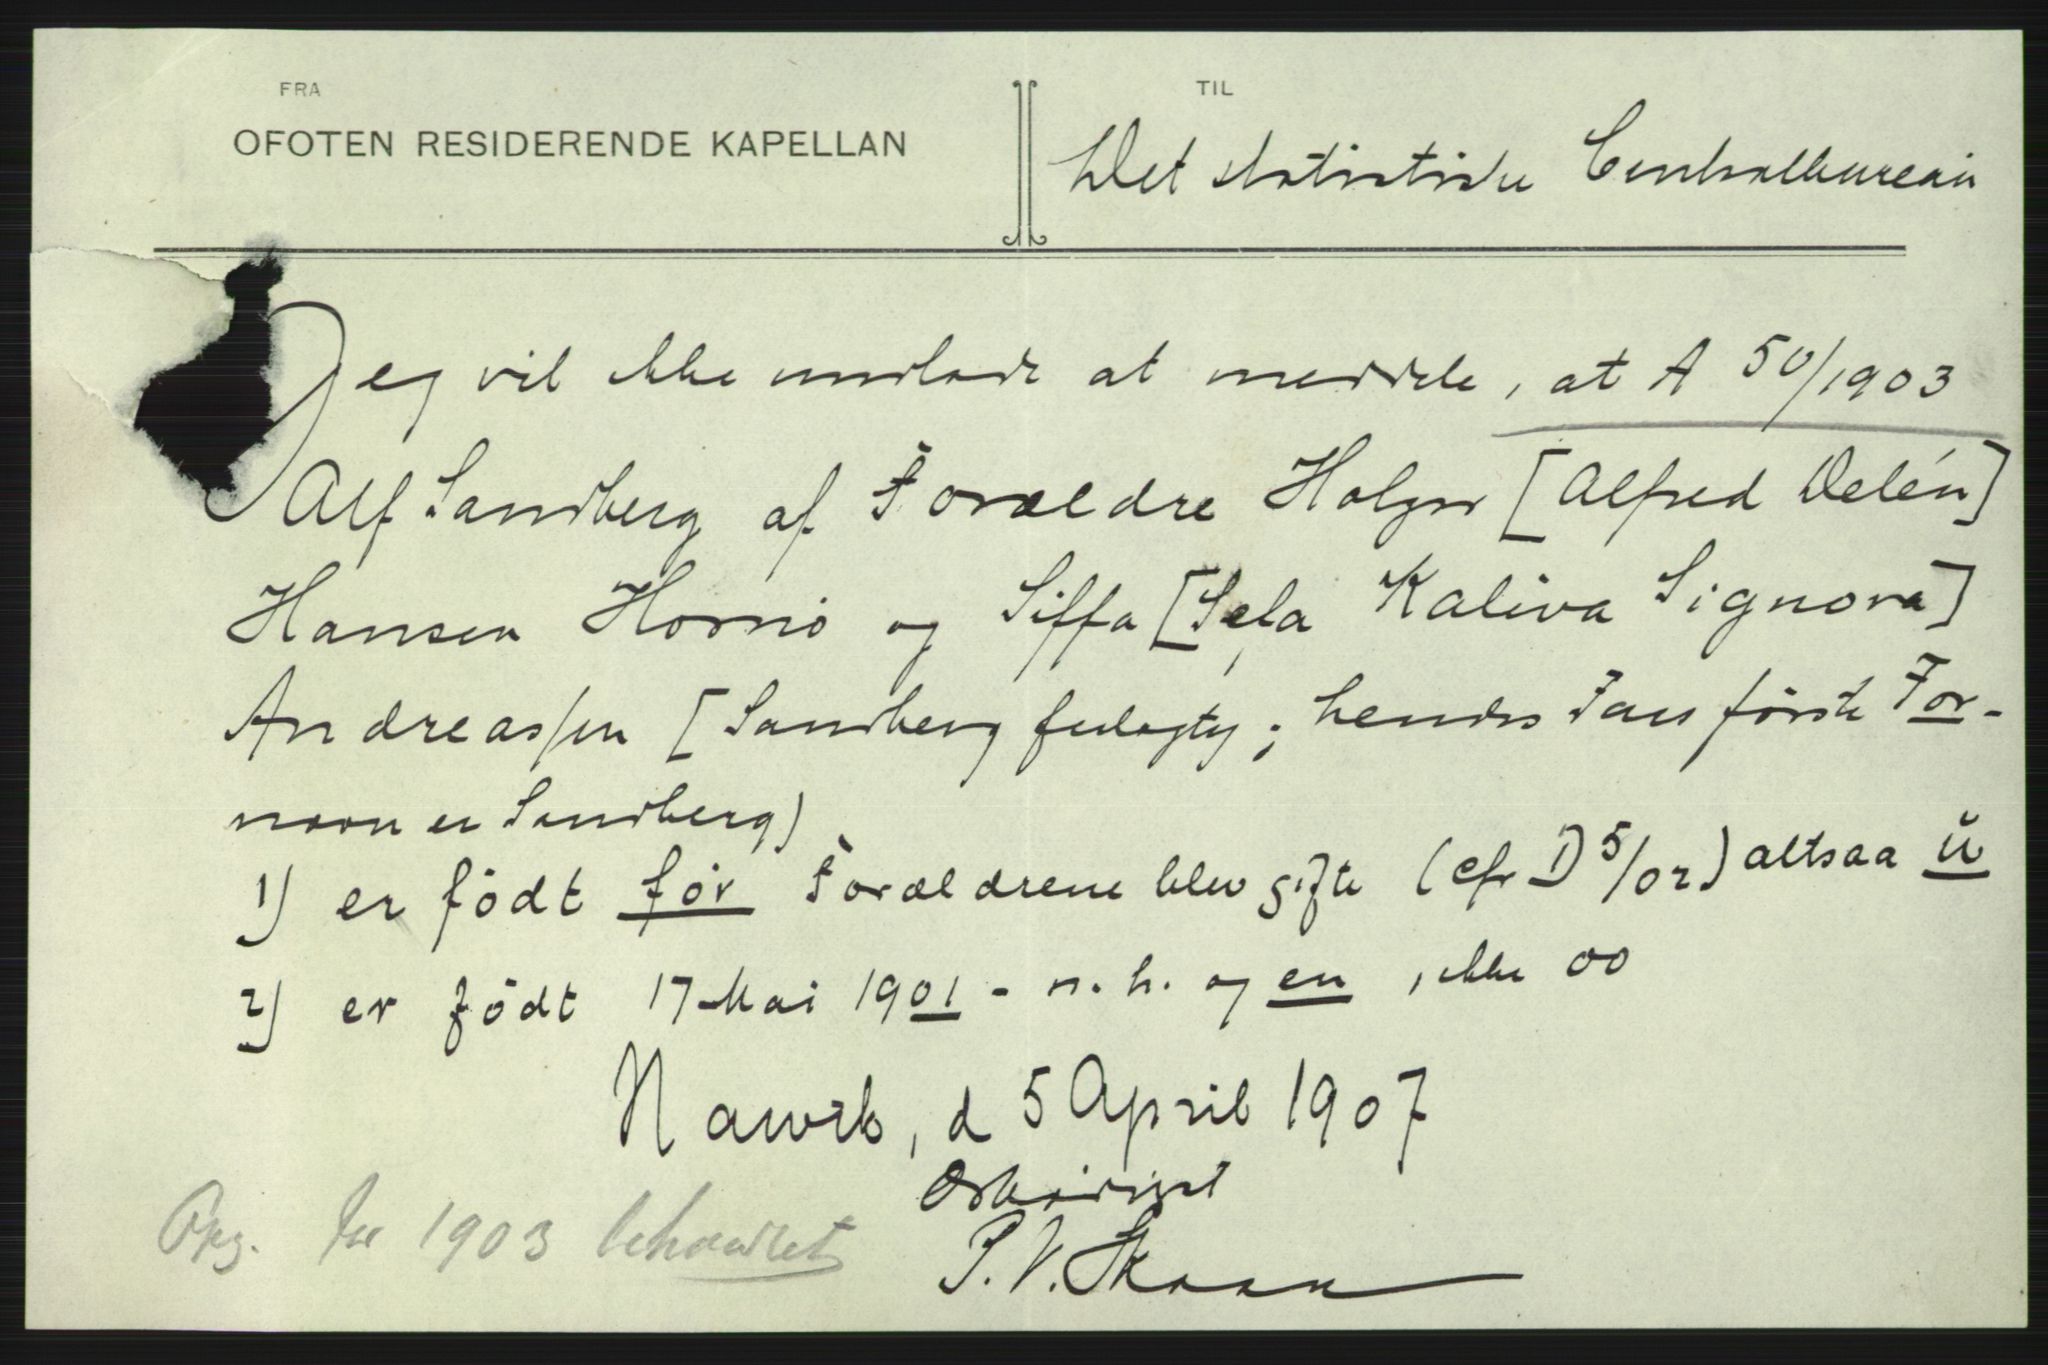 FRA
OFOTEN RESIDERENDE KAPELLAN
TIL
Det statistiske Centralbureau
Jeg vil ikke undlade at meddele, at A 50/1903
Alf Sandberg af Forældre Holger [Alfred Delén]
Hansen Hornö og Siffa [Sefa Kaliva Signora]
Andreassen [Sandberg ; hendes Fars første For-
navn er Sandberg)
1) er født før Forældrene blev gifte (cfr D 5/02) altsaa ŭ
2) er født 17 Mai 1901 - n. h. og en, ikke 00
Narvik, d 5 April 1907
Ærbødigst
P. V. Skaar
Opg. for 1903 behandlet